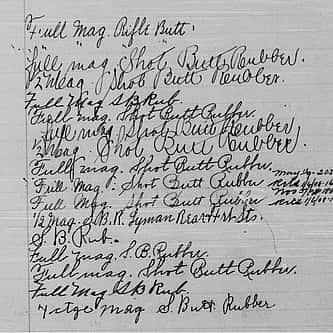 Full Mag. Rifle Butt.
Full mag, Shot Butt Rubber.
1/2 Mag, Shot Butt Rubber.
Full Mag S.B. Rub.
Full mag. Shot Butt Rubber.
Full mag, Shot Butt Rubber
1/2 Mag, Shot Butt Rubber.
Full Mag. Shot Butt Rubber.
Full Mag. Shot Butt Rubber
Full Mag. Shot Butt Rubber
1/2 Mag. S.B.R. Lyman Rear & Frt. Sts.
S. B. Rub.
Full Mag. S.B. Rubber.
Full mag. Shot Butt Rubber.
Full Mag S.B. Rub.
7 ctge Mag S. Butt Rubber